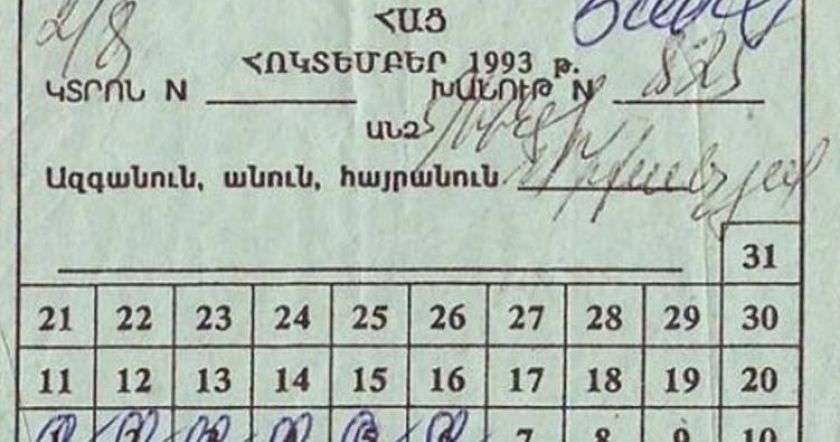 2/8
ՀԱՑ
ՀՈԿՏԵՄԲԵՐ 1993 թ.
ԿՏՐՈՆ N ԽԱՆՈՒԹ N 825
ԱՆՁ
Ազգանուն, անուն, հայրանուն
31
21 22 23 24 25 26 27 28 29 30
11 12 13 14 15 16 17 18 19 20
7 8 9 10